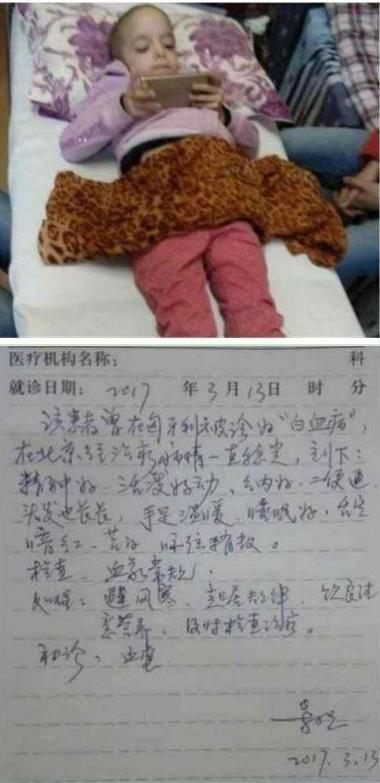 医疗机构名称: 科
就诊日期: 2017 年 3 月 13 日 时 分
该患者曾在匈牙利被诊为"白血病",
在北京经治疗病情一直稳定,刻下:
精神好、活泼好动、纳好、二便通
头发也长长,手足温暖,睡眠好,舌
暗红、苔
检查 血尿常规
处理:避风寒 起居规律 饮食注
意营养,及时检查治疗。
初诊:血
2017.3.13